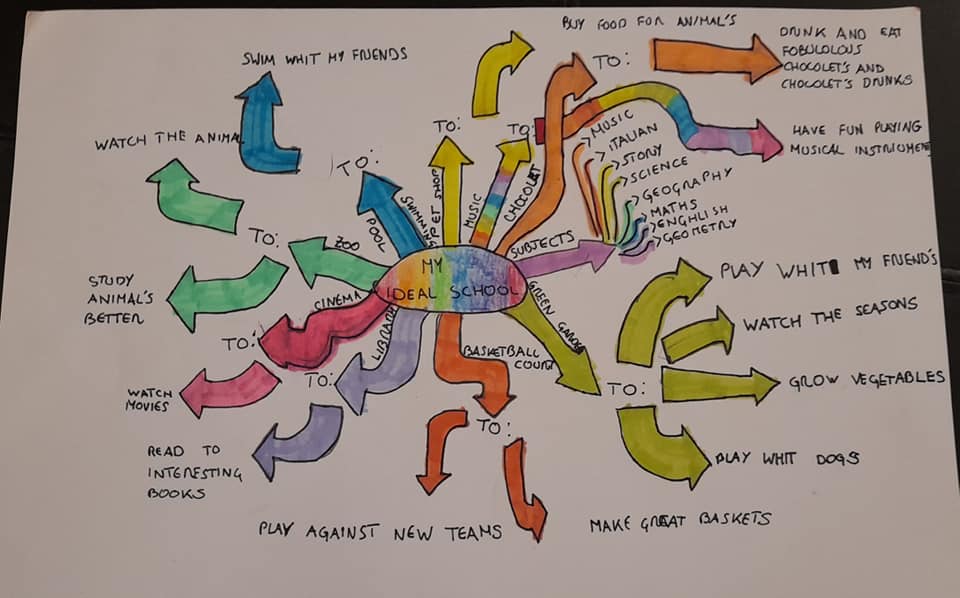 BUY FOOD FOR ANIMAL'S
TO:
DRUNK AND EAT
FOBULOLOUS
CHOCOLET'S AND
CHOCOLET'S DRUNKS
SWIM WHIT MY FRIENDS
TO:
TO:
HAVE FUN PLAYING
MUSICAL INSTRIUMENT
WATCH THE ANIMAL
TO:
MUSIC
ITALIAN
STORY
SCIENCE
GEOGRAPHY
MATHS
ENGHLISH
GEOMETRY
SWIMMING
POOL
PET SHOP
MUSIC
CHOCOLAT
SUBJECTS
TO:
ZOO
MY
IDEAL SCHOOL
STUDY
ANIMAL'S
BETTER
CINEMA
GREEN GARDEN
PLAY WHIT MY FRIEND'S
WATCH THE SEASONS
TO:
LIBRARY
BASKETBALL
COURT
TO:
TO:
GROW VEGETABLES
WATCH
MOVIES
TO:
READ TO
INTERESTING
BOOKS
PLAY WHIT DOGS
PLAY AGAINST NEW TEAMS
MAKE GREAT BASKETS